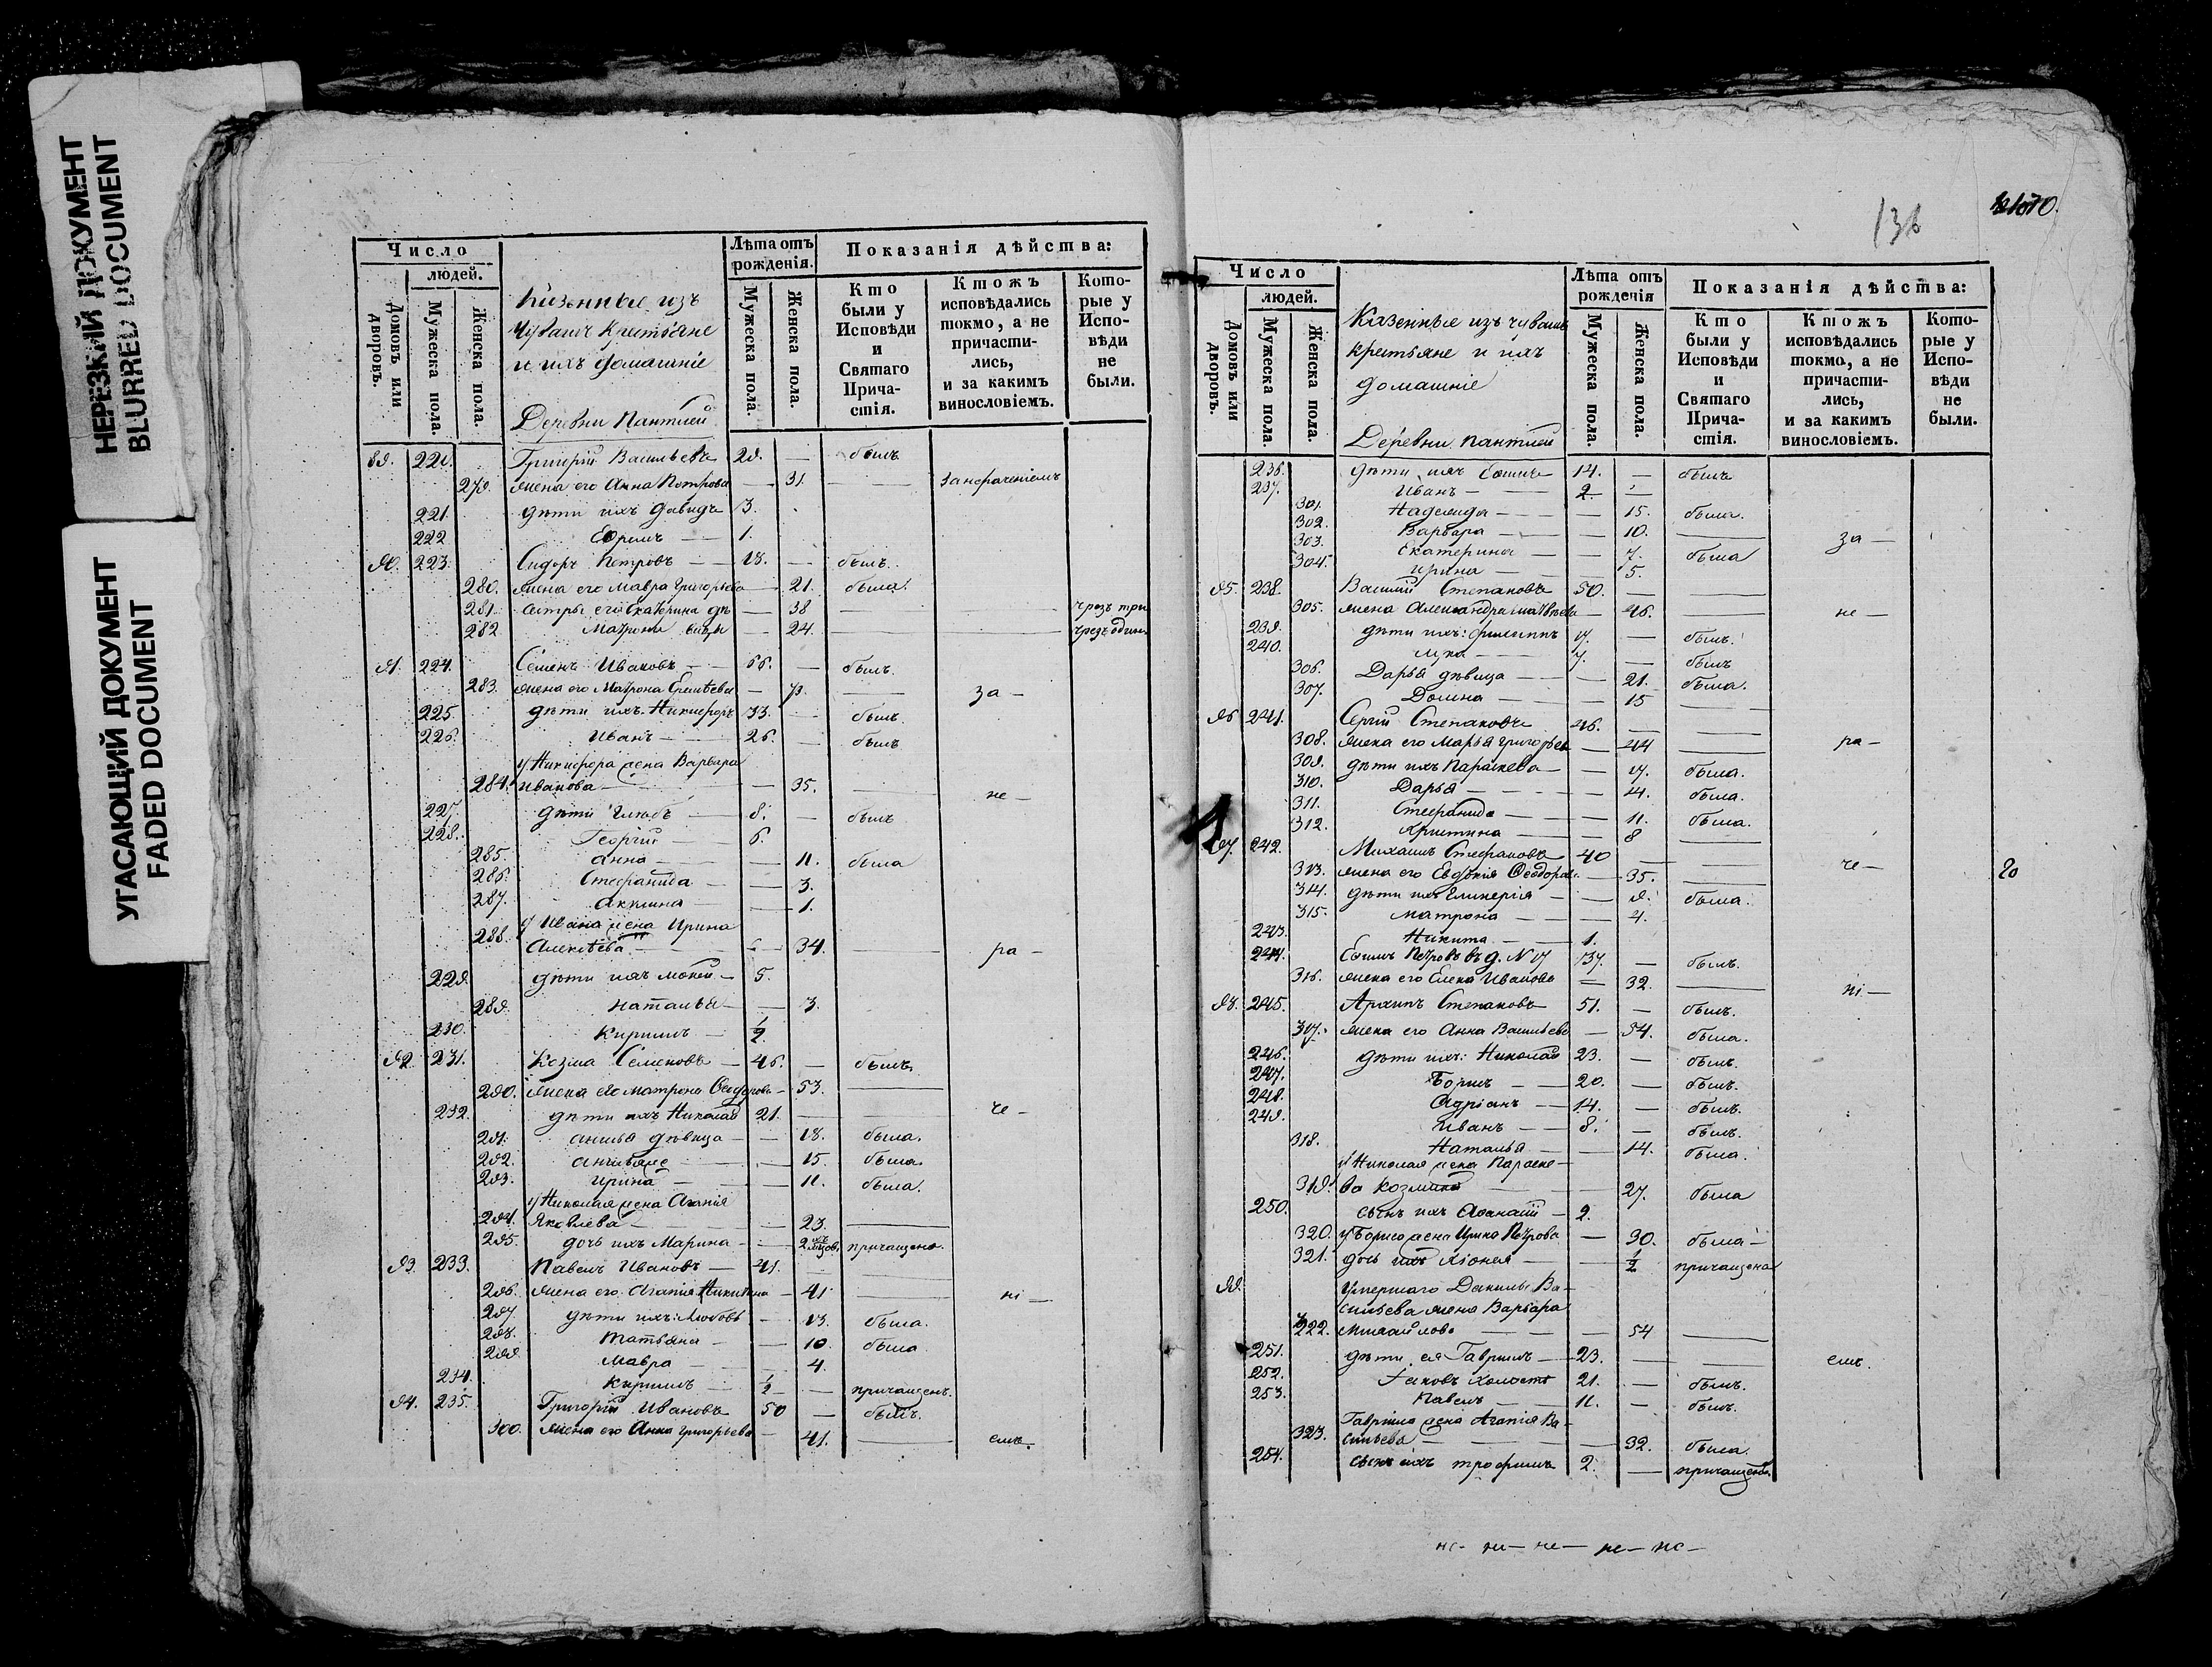 НЕРЕЗКИЙ ДОКУМЕНТ
BLURRED DOCUMENT
УГАСАЮЩИЙ ДОКУМЕНТ
FADED DOCUMENT
Число
людей.
Домовъ или дворовъ.
Мужеска пола.
Женска пола.
Казенные изъ
Чувашъ крестьяне
и ихъ домашніе
Деревни Пантией
Лѣта отъ рожденія.
Мужеска пола.
Женска пола.
Показанія дѣйства:
Кто были у Исповѣди и Святаго Причастія.
Ктожъ исповѣдались токмо, а не причастились, и за какимъ винословіемъ.
Которые у Исповѣди не были.
89. 220. Григорій Васильевъ 29. — былъ
279. жена его Анна Петрова — 31. — за нерачениемъ
221. дѣти ихъ Давидъ 3.
222 Ефремъ — 1.
90. 223. Сидоръ Петровъ — 18. — былъ.
280. жена его Мавра Григорьева — 21. была.
281. сестры его Екатерина дѣ — 38 — чрезъ три
282 Матрона — 24. — чрезъ один
91. 224. Семенъ Ивановъ — 66. — былъ.
283. жена его Матрона — за —
225. дѣти ихъ. Никифоръ 33. — былъ.
226. Иванъ — 26. — былъ
у Никифора жена Варвара
284. Иванова — 35. — не —
227. дѣти Глѣбъ — 8. — былъ
228. Георгій — 6.
285. Анна — 11. была
286. Стефанида — 3.
287. Акилина — 1.
у Ивана жена Ирина
288. Алексѣева — 34. — ра —
229. дѣти ихъ Мокей — 5.
289. Наталья — 3.
230. Кириллъ — 1/2.
92. 231. Козма Семеновъ — 46. — былъ.
290. жена его Матрона Феодорова — 53. —
232. дѣти ихъ Николай 21. — че —
291. дѣвица — 18. была.
292. — 15. была.
293. Ирина — 11. была.
у Николая жена Агапія
294. Яковлева — 23. —
295. дочь ихъ Марина — 2 причащена.
93. 233. Павелъ Ивановъ — 41. —
296. жена его Агапія Никитина — 41 — ні —
297. дѣти ихъ: Любовь — 13. была.
298. Татьяна — 10 была.
299. Мавра — 4.
234. Кириллъ — 1/2 — причащенъ.
94. 235. Григорій Ивановъ 50 — былъ.
300. жена его Анна Григорьева — 41. — емъ.
136
Число
людей.
Домовъ или дворовъ.
Мужеска пола.
Женска пола.
Казенные изъ чувашъ
крестьяне и ихъ
домашніе
Деревни Пантией
Лѣта отъ рожденія
Мужеска пола.
Женска пола.
Показанія дѣйства:
Кто были у Исповѣди и Святаго Причастія.
Ктожъ исповѣдались токмо, а не причастились, и за какимъ винословіемъ.
Которые у Исповѣди не были.
236. дѣти ихъ 14. — былъ
237. Иванъ — 2. —
301. Надежда — 15. была.
302. Варвара — 10. — за —
303. Екатерина — 7. была
304. Ирина — 5.
95. 238. Василій Степановъ 50. —
305. жена Александра Матвѣева — 46. — не —
239. дѣти ихъ: Филиппъ 17. — былъ.
240. Лука — 7. — былъ
306. Дарья дѣвица — 21. была.
307. Домна — 15 —
96 241. Сергій Степановъ 46. —
308. жена его Марья Григорьева — 44 — ра —
309. дѣти ихъ Параскева — 17. была.
310. Дарья — 14. была.
311. Стефанида — 11. была.
312. Христина — 8 —
97. 242. Михаилъ Стефановъ 40 — че —
313. жена его Евдокія Феодорова — 35. —
20
314. дѣти ихъ Гликерія — 9. была.
315. Матрона — 4.
243. Никита — 1.
244. Петровъ въ д. № 17 37. — былъ.
316. жена его Елена Иванова — 32. — ні —
98. 245. Архипъ Степановъ 51. — былъ.
317. жена его Анна Васильева — 54. была.
246. дѣти ихъ: Николай 23. — былъ.
247. Борисъ — 20. — былъ.
248. Адріанъ — 14. — былъ.
249. Иванъ — 8. — былъ.
318. Наталья — 14. была.
у Николая жена Параске-
319. ва Козмина — 27. была
250. сынъ ихъ Афанасій — 2.
320. у Бориса жена Ирина Петрова — 30. была —
321. дочь ихъ Хіонея — 1/2 причащена
99. Умершаго Данилы Ва-
сильева жена Варвара
322. Михайлова — 54 —
251. дѣти ея Гавриилъ — 23. — емъ.
252. Іаковъ холостъ 21. — былъ.
253. Павелъ — 11. — былъ.
Гавріила жена Агапія Ва-
323. сильева — 32. была.
254. сынъ ихъ Трофимъ 2. — причащенъ.